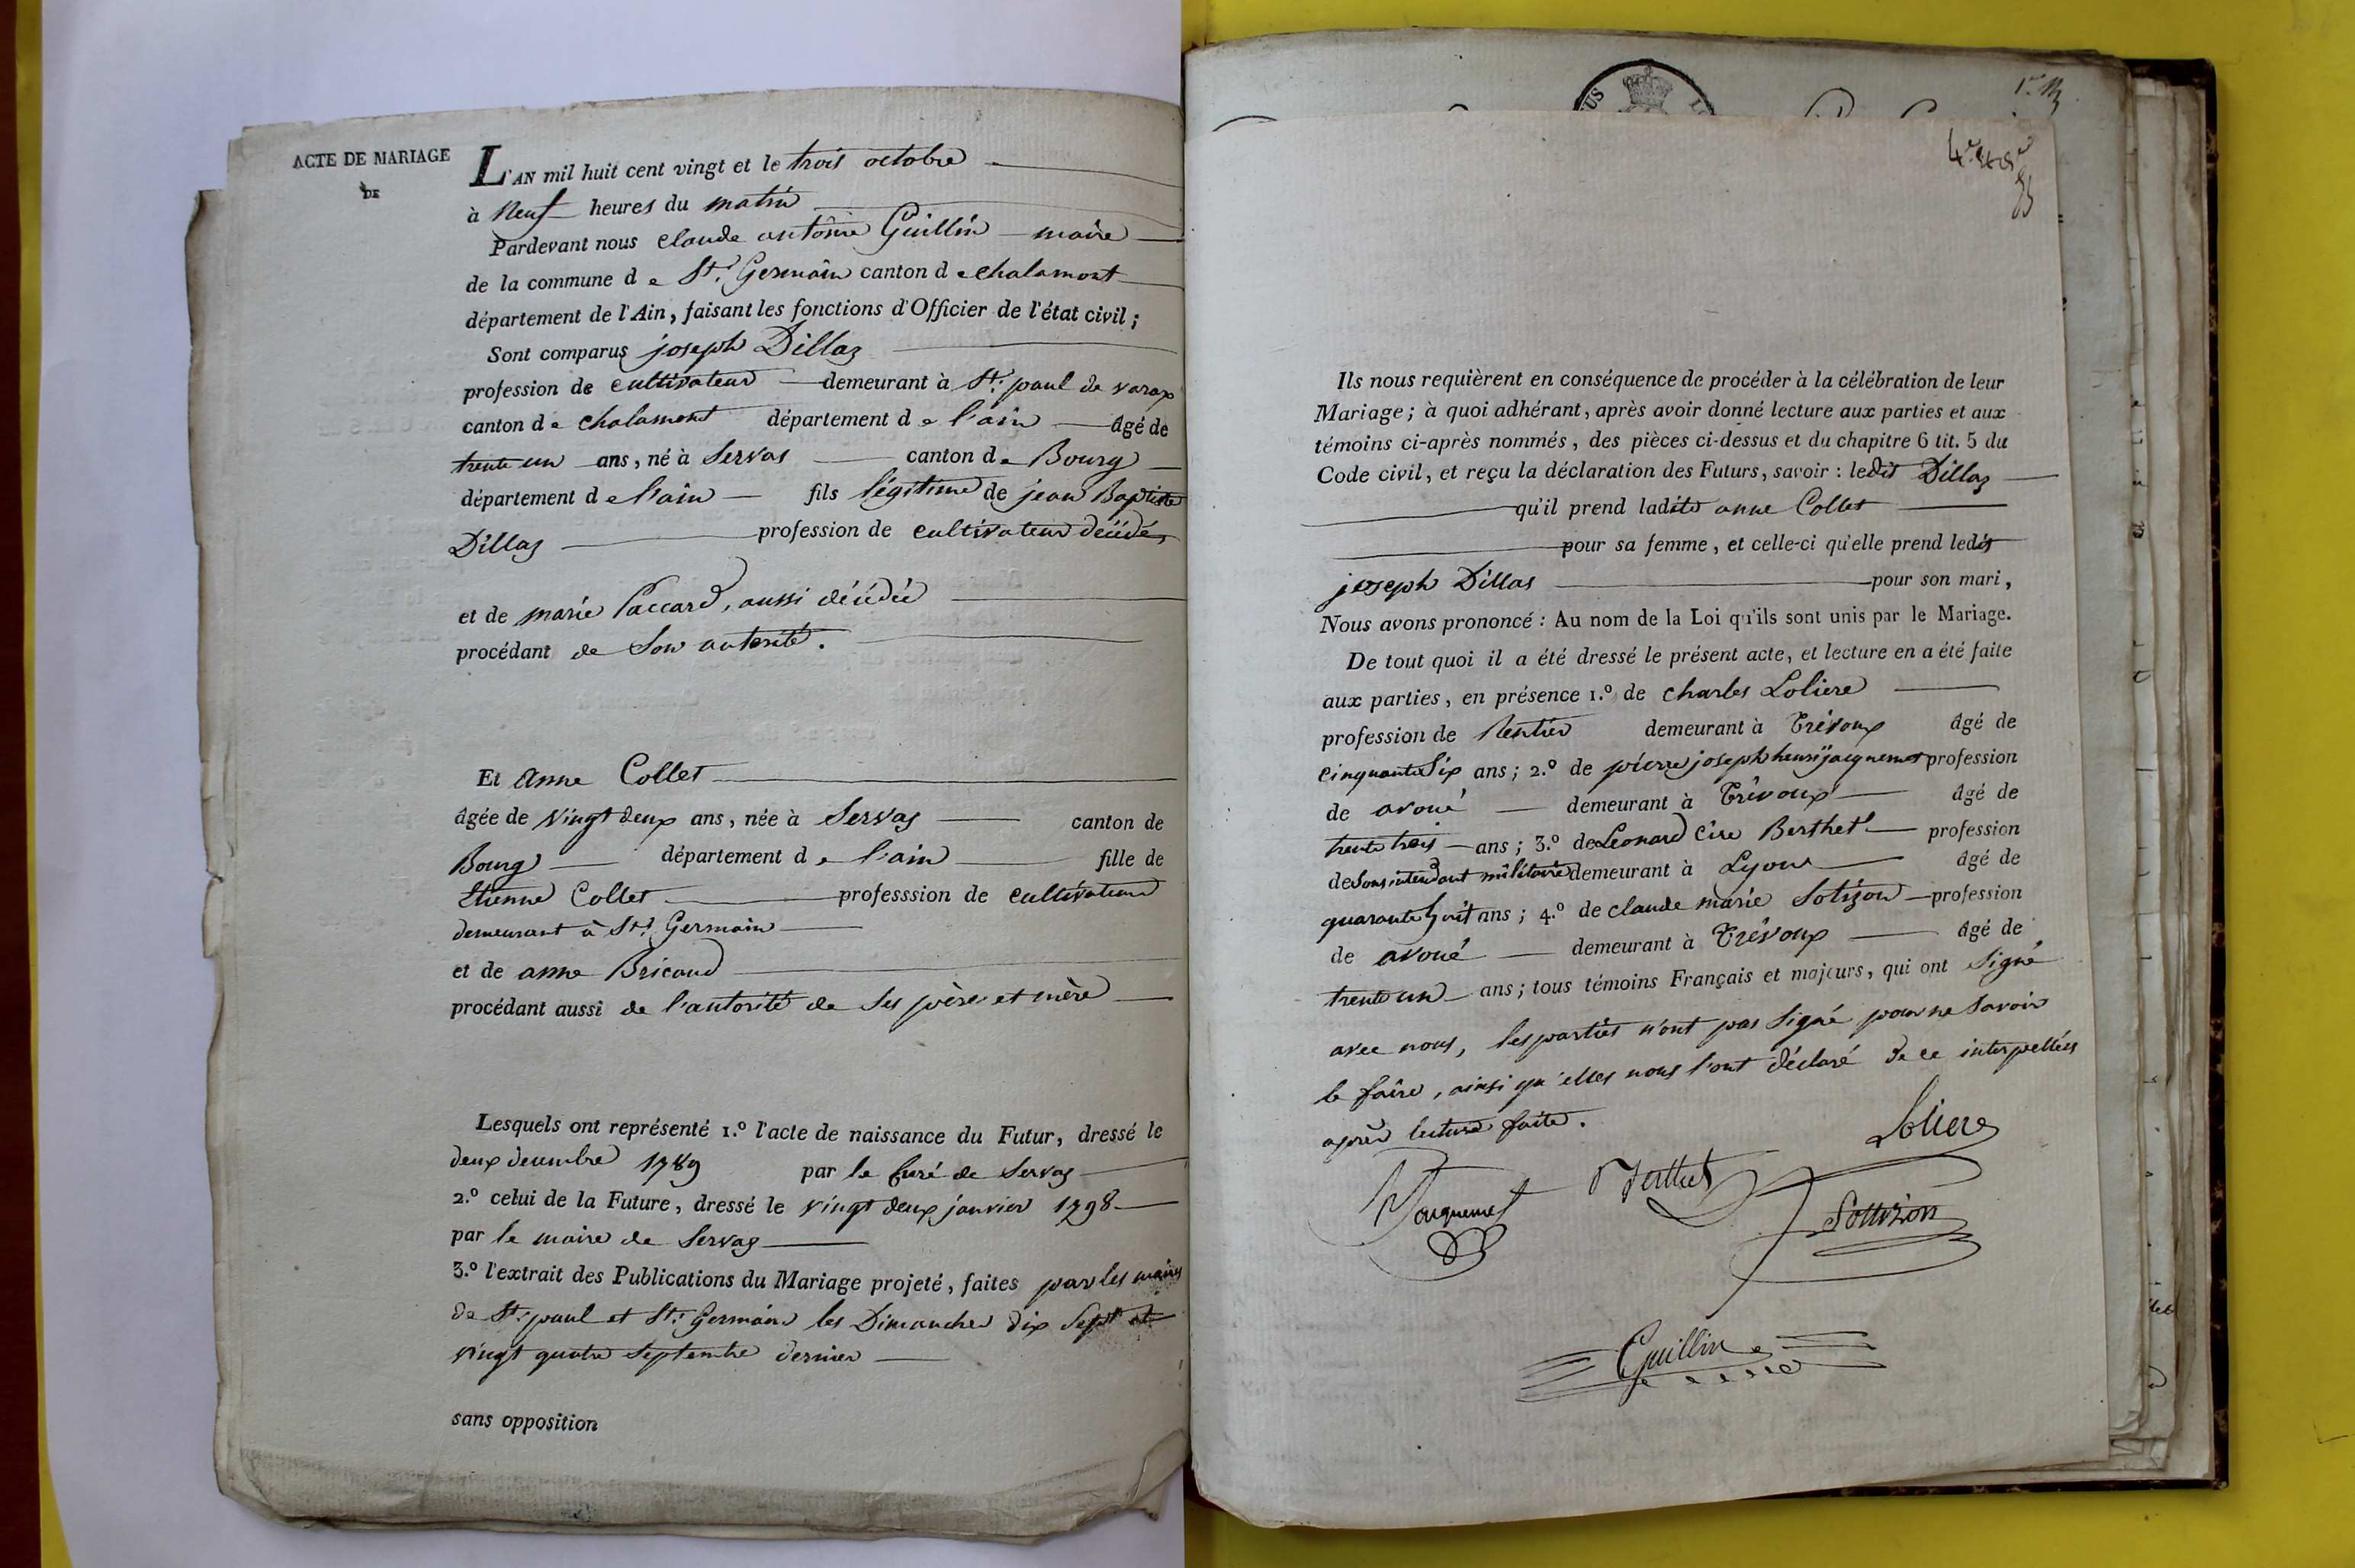 ACTE DE MARIAGE
DE
L'AN mil huit cent vingt et le trois octobre
à Neuf heures du matin
Pardevant nous claude antoine Guillin maire
de la commune de St. Germain canton de chalamont
département de l'Ain, faisant les fonctions d'Officier de l'état civil;
Sont comparus joseph Dillaz
profession de cultivateur demeurant à St. paul de varax
canton de chalamont département de l'ain âgé de
trente un ans, né à Servas canton de Bourg
département de l'ain fils légitime de jean Baptiste
Dillaz profession de cultivateur décédé,
et de marie Paccard, aussi décédée
procédant de Son autorité.
Et Anne Collet
âgée de vingt deux ans, née à Servas canton de
Bourg département de l'ain fille de
Etienne Collet professsion de cultivateur
demeurant à St. Germain
et de anne Bricaud
procédant aussi de l'autorité de Ses père et mère
Lesquels ont représenté 1.º l'acte de naissance du Futur, dressé le
deux décembre 1789 par le Curé de Servas
2.º celui de la Future, dressé le vingt deux janvier 1798
par le maire de Servas
3.º l'extrait des Publications du Mariage projeté, faites par les maires
de St. paul et St. Germain les Dimanches dix Sept et
vingt quatre Septembre dernier
sans opposition
US
Ils nous requièrent en conséquence de procéder à la célébration de leur
Mariage; à quoi adhérant, après avoir donné lecture aux parties et aux
témoins ci-après nommés, des pièces ci-dessus et du chapitre 6 tit. 5 du
Code civil, et reçu la déclaration des Futurs, savoir: ledit Dillaz
qu'il prend ladite anne Collet
pour sa femme, et celle-ci qu'elle prend ledit
joseph Dillas pour son mari,
Nous avons prononcé: Au nom de la Loi qu'ils sont unis par le Mariage.
De tout quoi il a été dressé le présent acte, et lecture en a été faite
aux parties, en présence 1.º de charles Loliere
profession de Rentier demeurant à Trévoux âgé de
cinquante Six ans; 2.º de pierre joseph henri jacquemet profession
de avoué demeurant à Trévoux âgé de
trente trois ans; 3.º de Leonard Cire Berthet profession
de Sous intendant militaire demeurant à Lyon âgé de
quarante huit ans; 4.º de claude marie Sotizon profession
de avoué demeurant à Trévoux âgé de
trente un ans; tous témoins Français et majeurs, qui ont Signé
avec nous, les parties n'ont pas Signé pour ne Savoir
le faire, ainsi qu'elles nous l'ont déclaré de ce interpellées
après lecture faite.
Loliere
Jacquemet
Berthet
Sottizon
Guillin